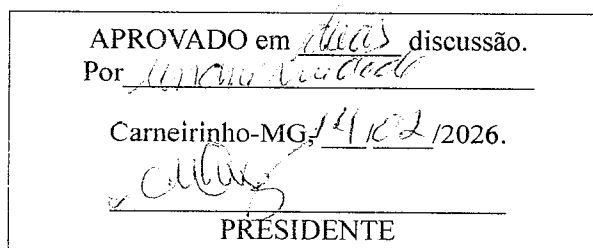 APROVADO em duas discussão.
Por unanimidade
Carneirinho-MG, 14/02/2026.
PRESIDENTE